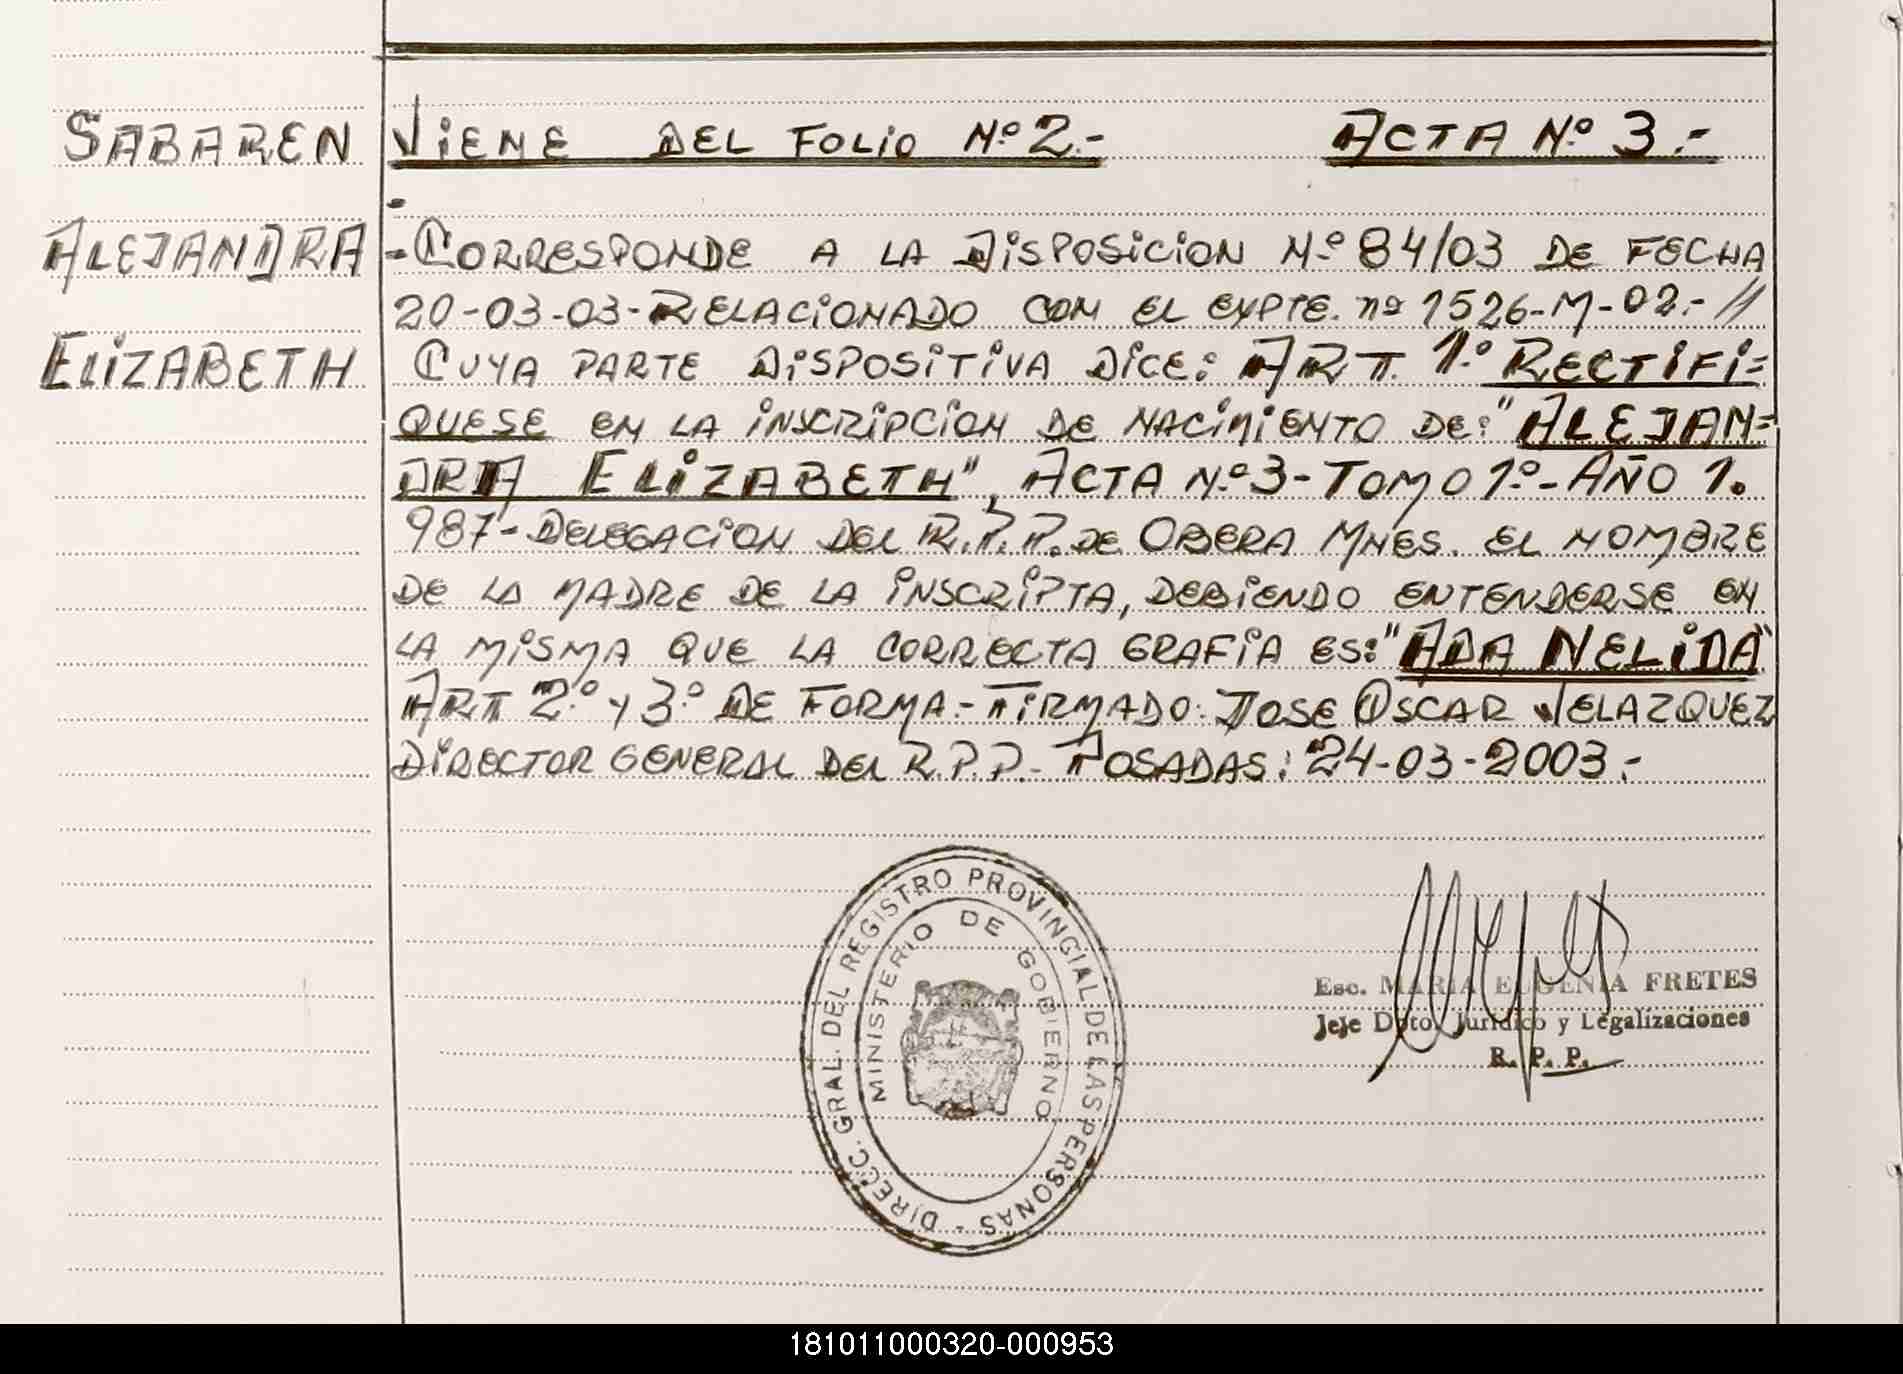 SABAREN
ALEJANDRA
ELIZABETH
VIENE DEL FOLIO Nº 2.-
ACTA Nº 3.-
-CORRESPONDE A LA DISPOSICION Nº 84/03 DE FECHA
20-03-03-RELACIONADO CON EL EXPTE. nº 1526-M-02.-//
CUYA PARTE DISPOSITIVA DICE: ART. 1º RECTIFI=
QUESE EN LA INSCRIPCION DE NACIMIENTO DE: "ALEJAN=
DRA ELIZABETH", ACTA Nº 3-TOMO 1º-AÑO 1.
987-DELEGACION DEL R.P.P. DE OBERA MNES. EL NOMBRE
DE LA MADRE DE LA INSCRIPTA, DEBIENDO ENTENDERSE EN
LA MISMA QUE LA CORRECTA GRAFIA ES: "ADA NELIDA"
ART 2º Y 3º DE FORMA.-FIRMADO: JOSE OSCAR VELAZQUEZ
DIRECTOR GENERAL DEL R.P.P.- POSADAS: 24-03-2003.-
DIRECC. GRAL. DEL REGISTRO PROVINCIAL DE LAS PERSONAS -
MINISTERIO DE GOBIERNO
Esc. MARIA EUGENIA FRETES
Jefe Dpto. Jurídico y Legalizaciones
R. P. P.
181011000320-000953